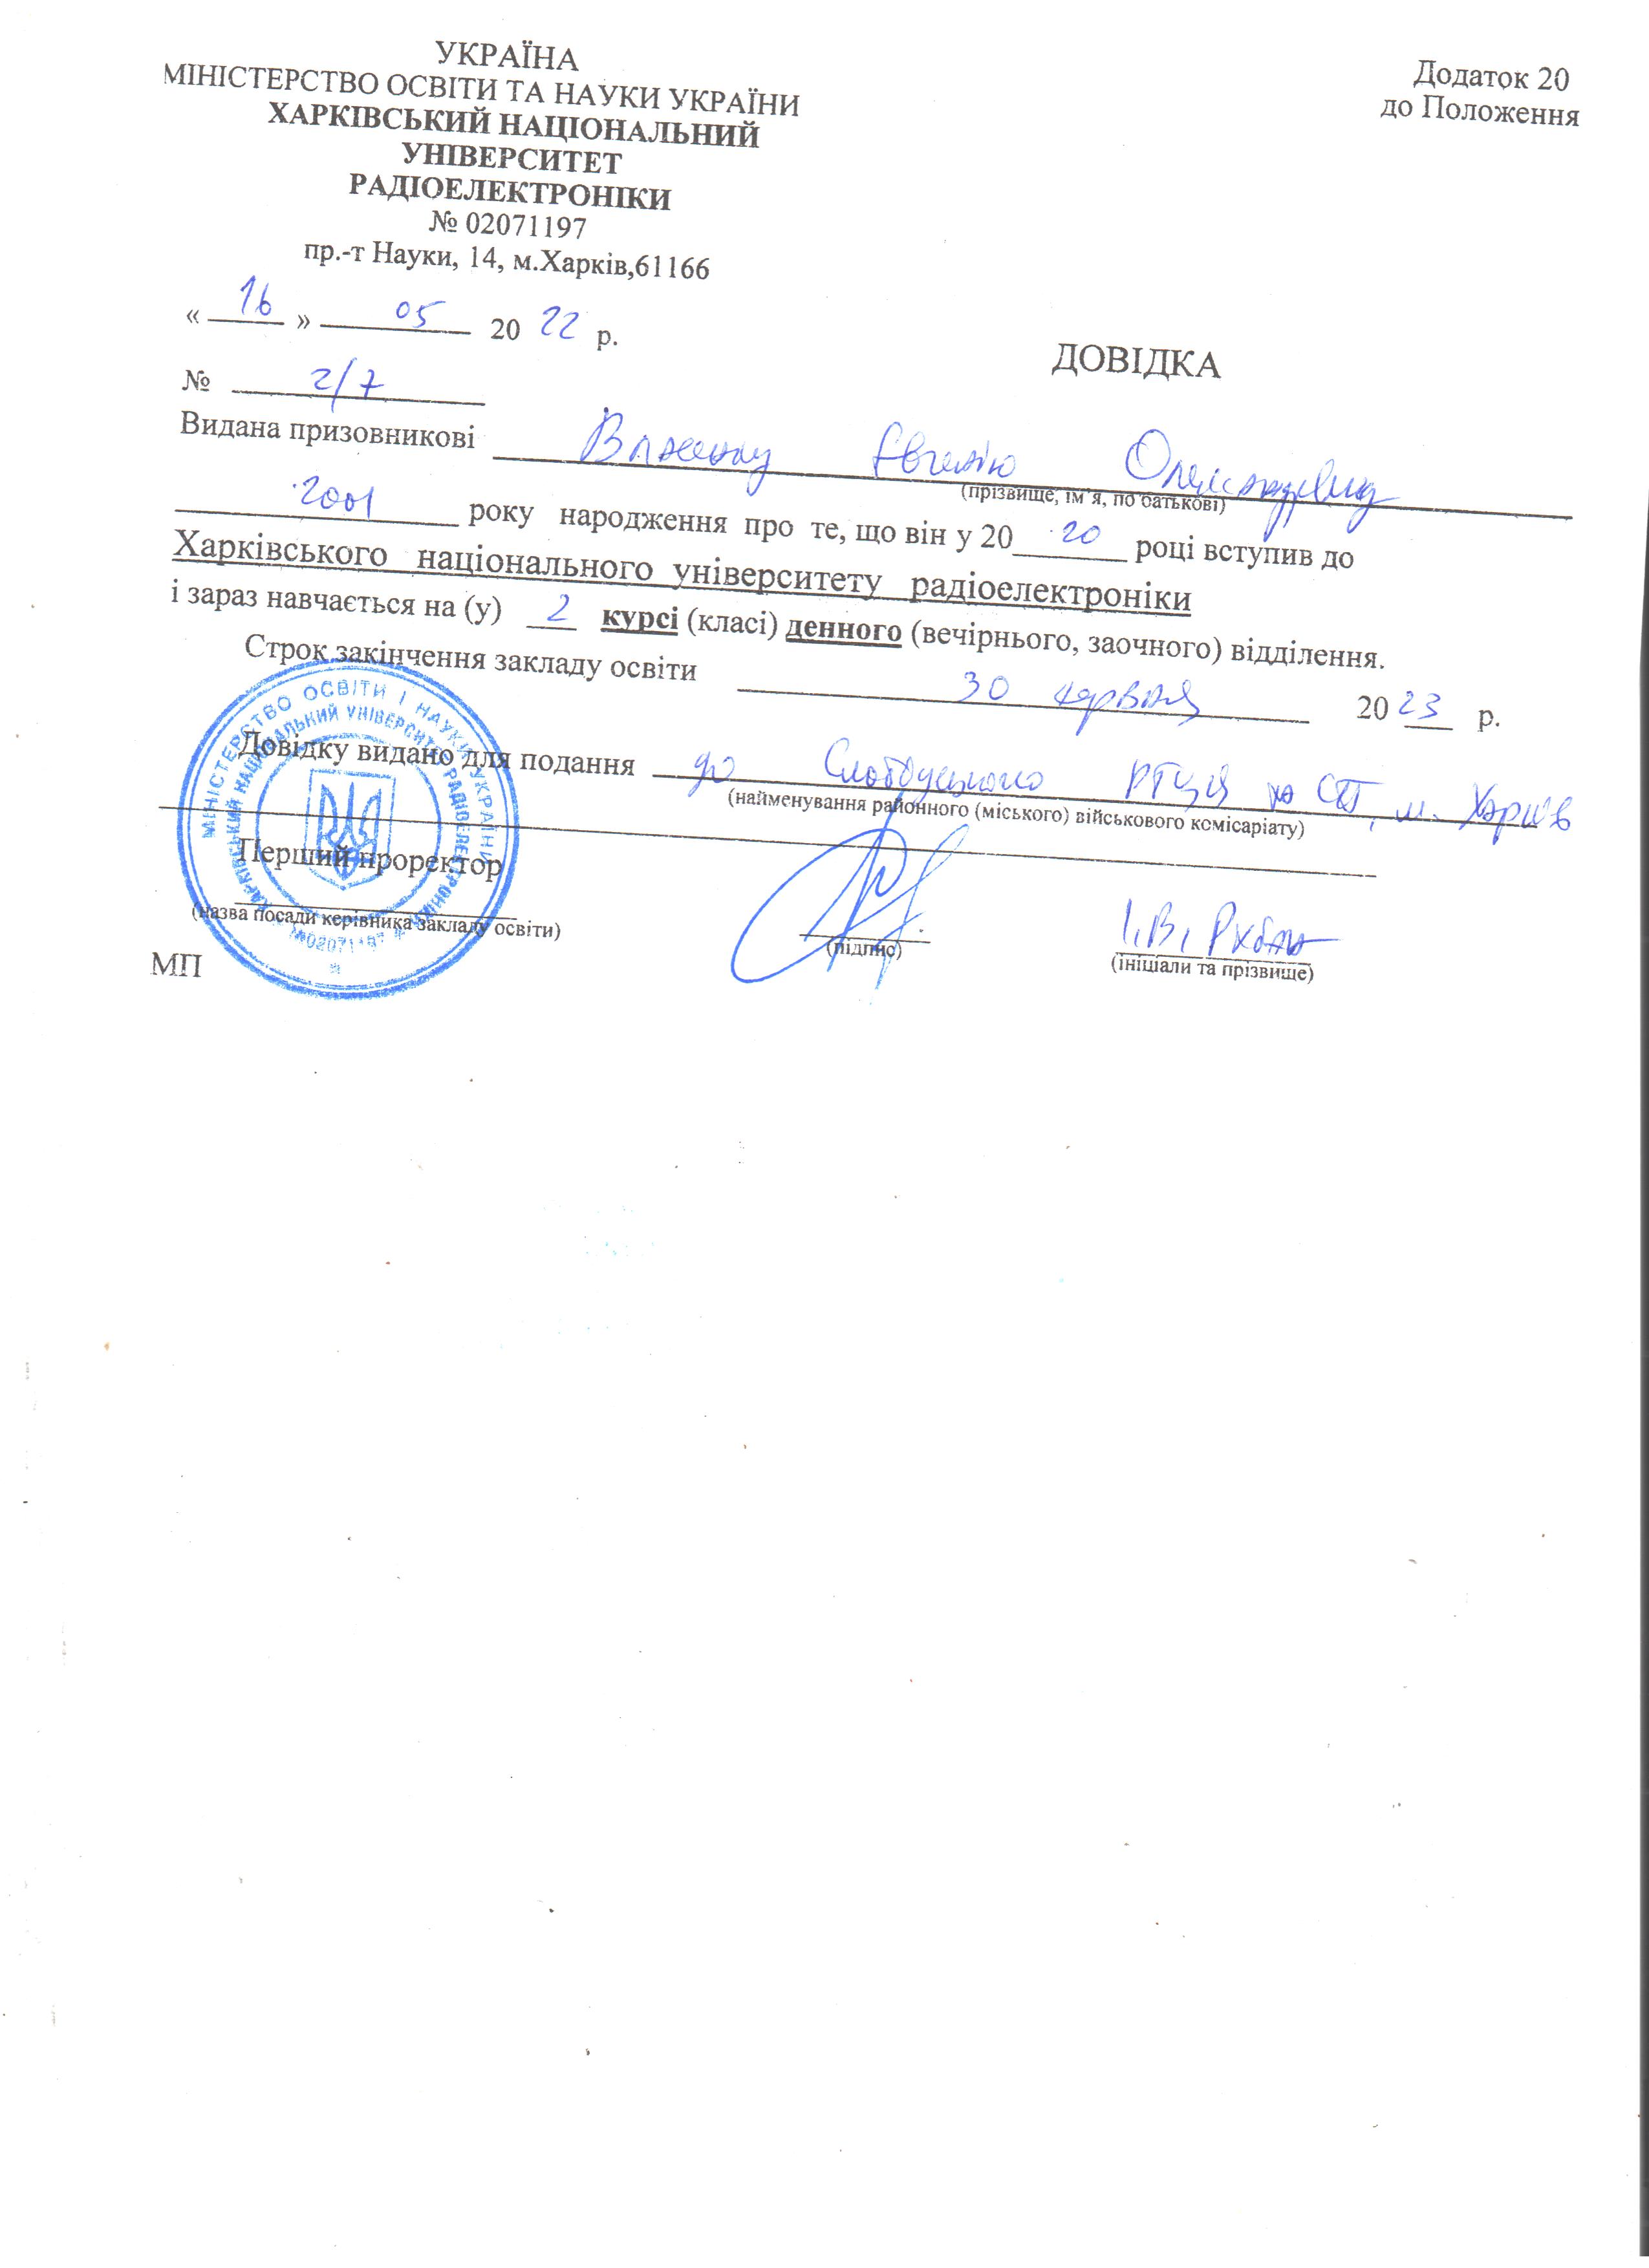 УКРАЇНА
МІНІСТЕРСТВО ОСВІТИ ТА НАУКИ УКРАЇНИ
ХАРКІВСЬКИЙ НАЦІОНАЛЬНИЙ
УНІВЕРСИТЕТ
РАДІОЕЛЕКТРОНІКИ
№ 02071197
пр.-т Науки, 14, м.Харків,61166
Додаток 20
до Положення
« 16 » 05 20 22 р.
ДОВІДКА
№ 2/7
Видана призовникові Євгенію Олександровичу
(прізвище, ім'я, по батькові)
2001 року народження про те, що він у 20 20 році вступив до
Харківського національного університету радіоелектроніки
і зараз навчається на (у) 2 курсі (класі) денного (вечірнього, заочного) відділення.
Строк закінчення закладу освіти 30 червня 20 23 р.
Довідку видано для подання до Слобідського РТЦК та СП, м. Харків
(найменування районного (міського) військового комісаріату)
Перший проректор
(назва посади керівника закладу освіти)
(підпис)
І.В. Рубан
(ініціали та прізвище)
МП
МІНІСТЕРСТВО ОСВІТИ І НАУКИ УКРАЇНИ
ХАРКІВСЬКИЙ НАЦІОНАЛЬНИЙ УНІВЕРСИТЕТ РАДІОЕЛЕКТРОНІКИ
02071197